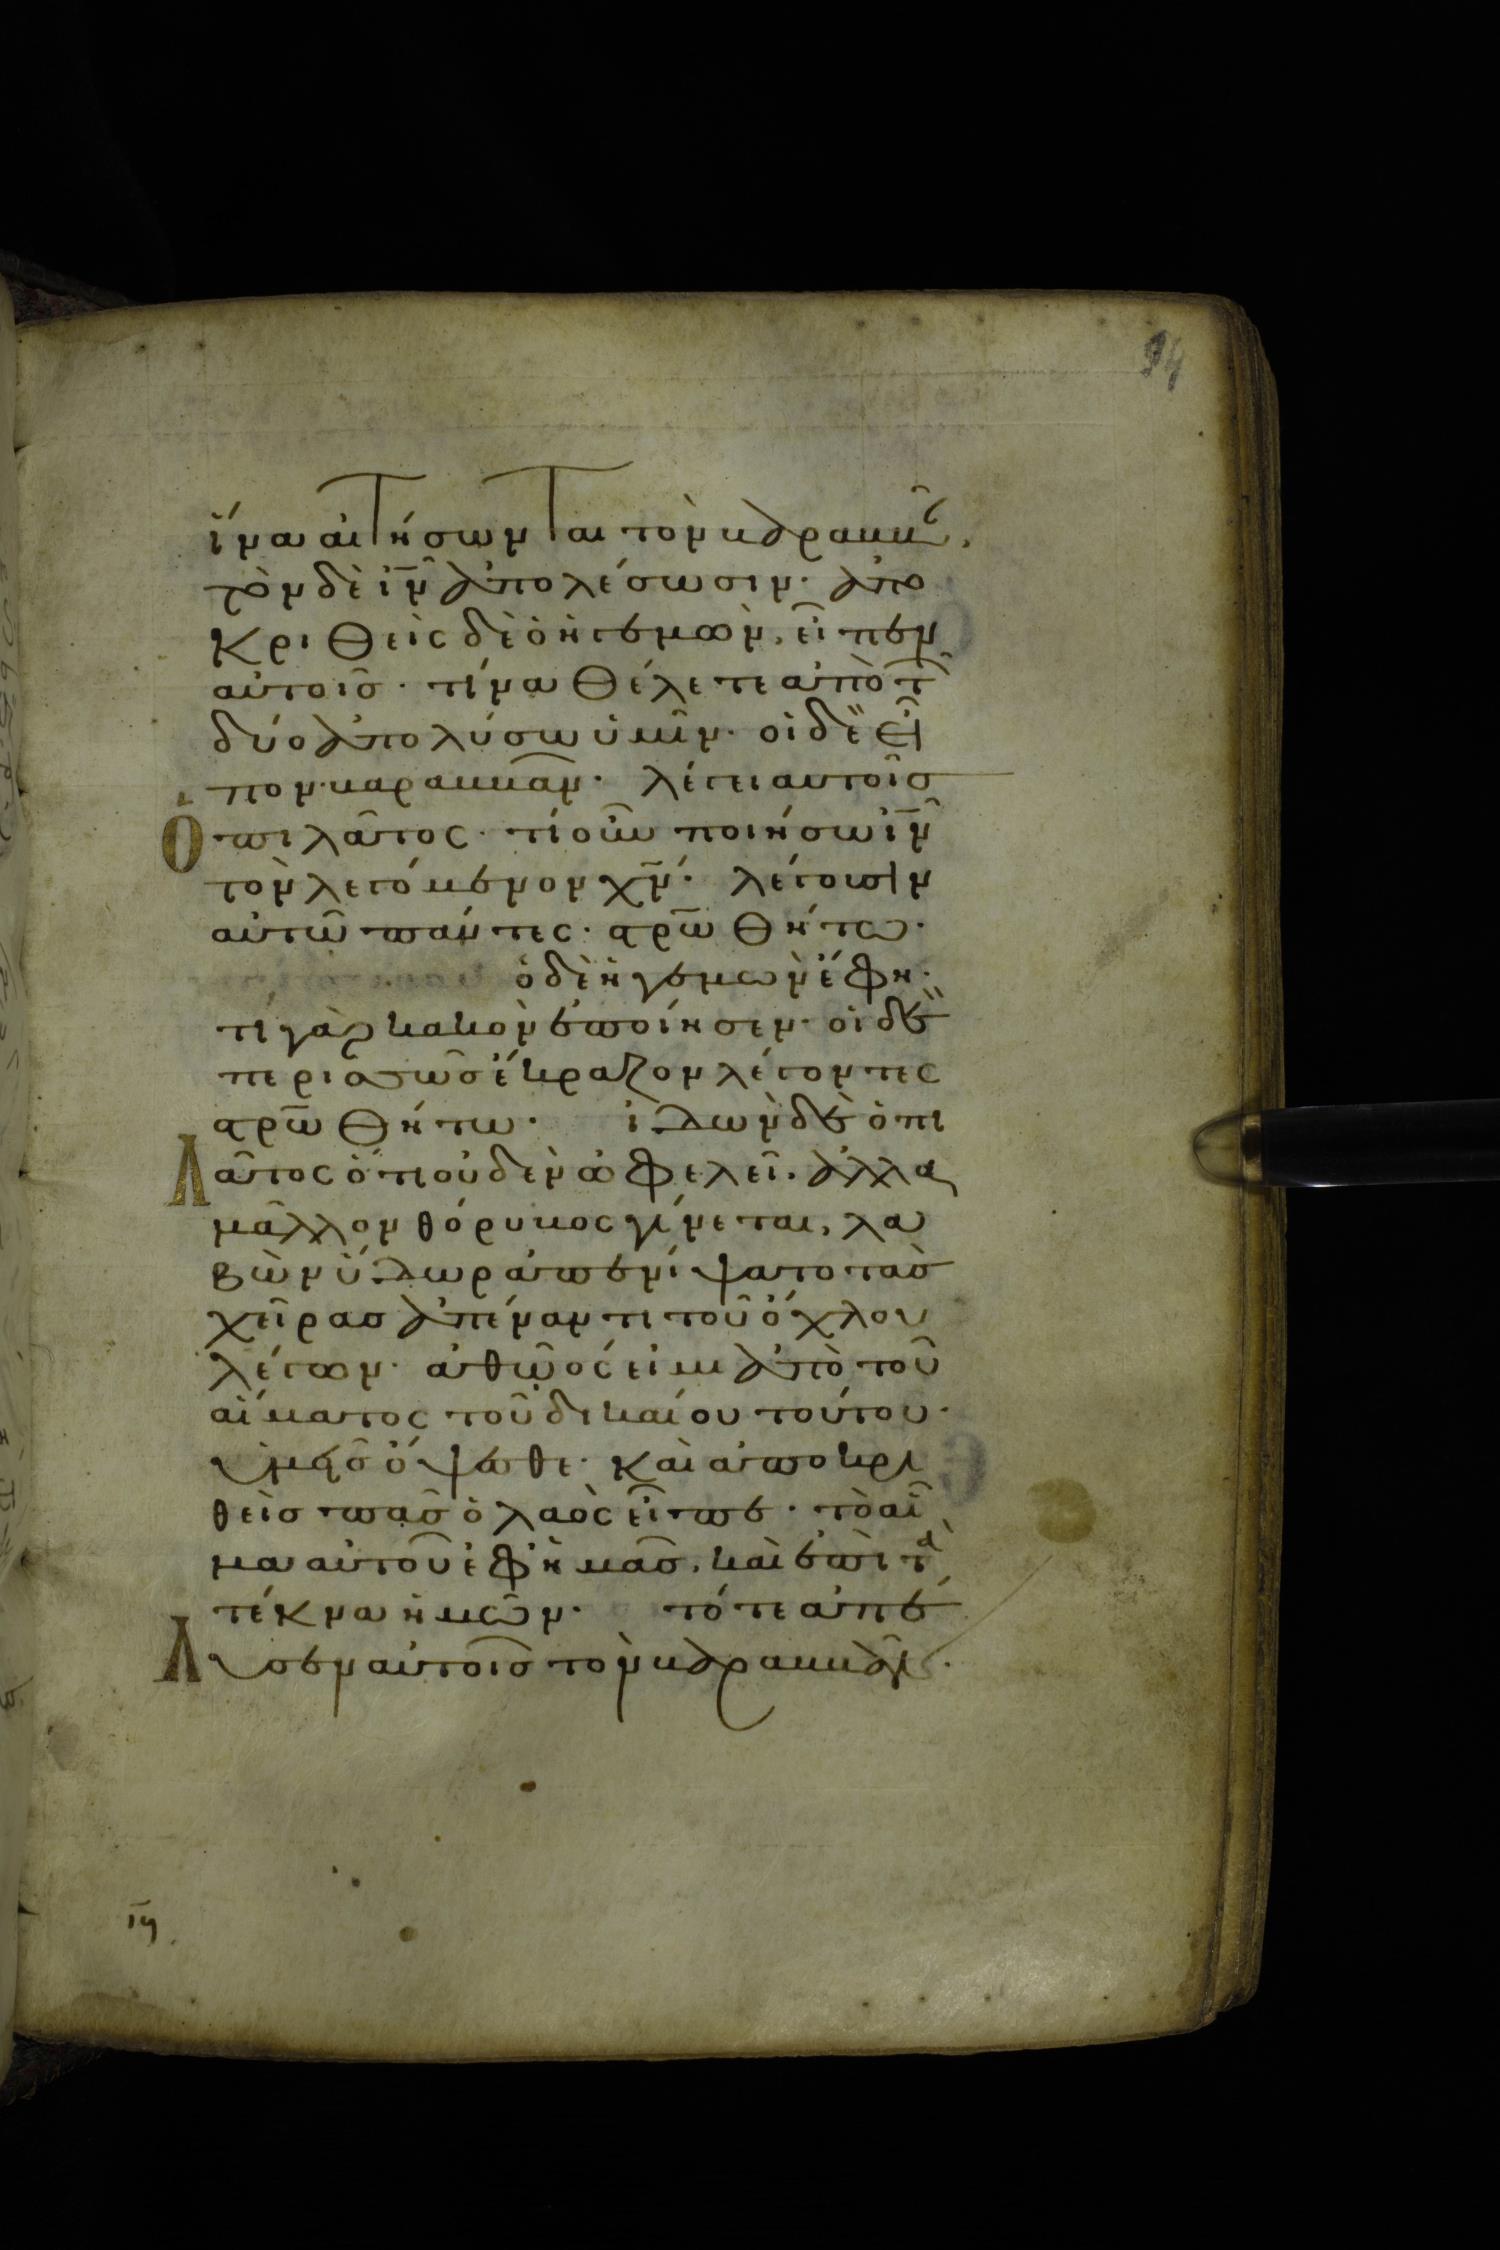 94
ἵνα αἰτήσωνται τὸν βαραββᾶ,
τὸν δὲ ἰ̅ν̅ ἀπολέσωσιν· ἀπο
κριθεὶς δὲ ὁ ἡγεμὼν, εἶπεν
αὐτοῖσ· τίνα θέλετε ἀπὸ τῶ
δύο ἀπολύσω ὑμῖν· οἱ δὲ εἶ
πον· βαραββᾶν· λέγει αυτοῖσ
ὁ πιλᾶτος· τί οὖν ποιήσω ἰ̅ν̅
τὸν λεγόμενον χ̅ν̅· λέγουσιν
αὐτῶ πάντες· σ̅ρ̅ωθήτω·
ὁ δὲ ἡγεμὼν ἔφη·
τί γὰρ κακὸν ἐποίησεν· οἱ δὲ
περισσῶσ ἔκραζον λέγοντες
σ̅ρ̅ωθήτω· ἰδὼν δὲ ὁ πι
λᾶτος ὅτι οὐδὲν ὠφελεῖ. ἀλλὰ
μᾶλλον θόρυβος γίνεται, λα
βὼν ὕδωρ ἀπενίψατο τὰσ
χεῖρασ ἀπέναντι τοῦ ὄχλου
λέγων· ἀθῶός εἰμι ἀπὸ τοῦ
αἵματος τοῦ δικαίου τούτου·
ὑμεῖσ ὄψεσθε· καὶ ἀποκρι
θεὶσ πᾶσ ὁ λαὸς εἶπε· τὸ αἷ
μα αὐτοῦ ἐφ ἡμᾶσ, καὶ ἐπὶ τὰ
τέκνα ἡμῶν· τότε ἀπέ
λυσεν αὐτοῖσ τὸν βαραββᾶν·
ιη